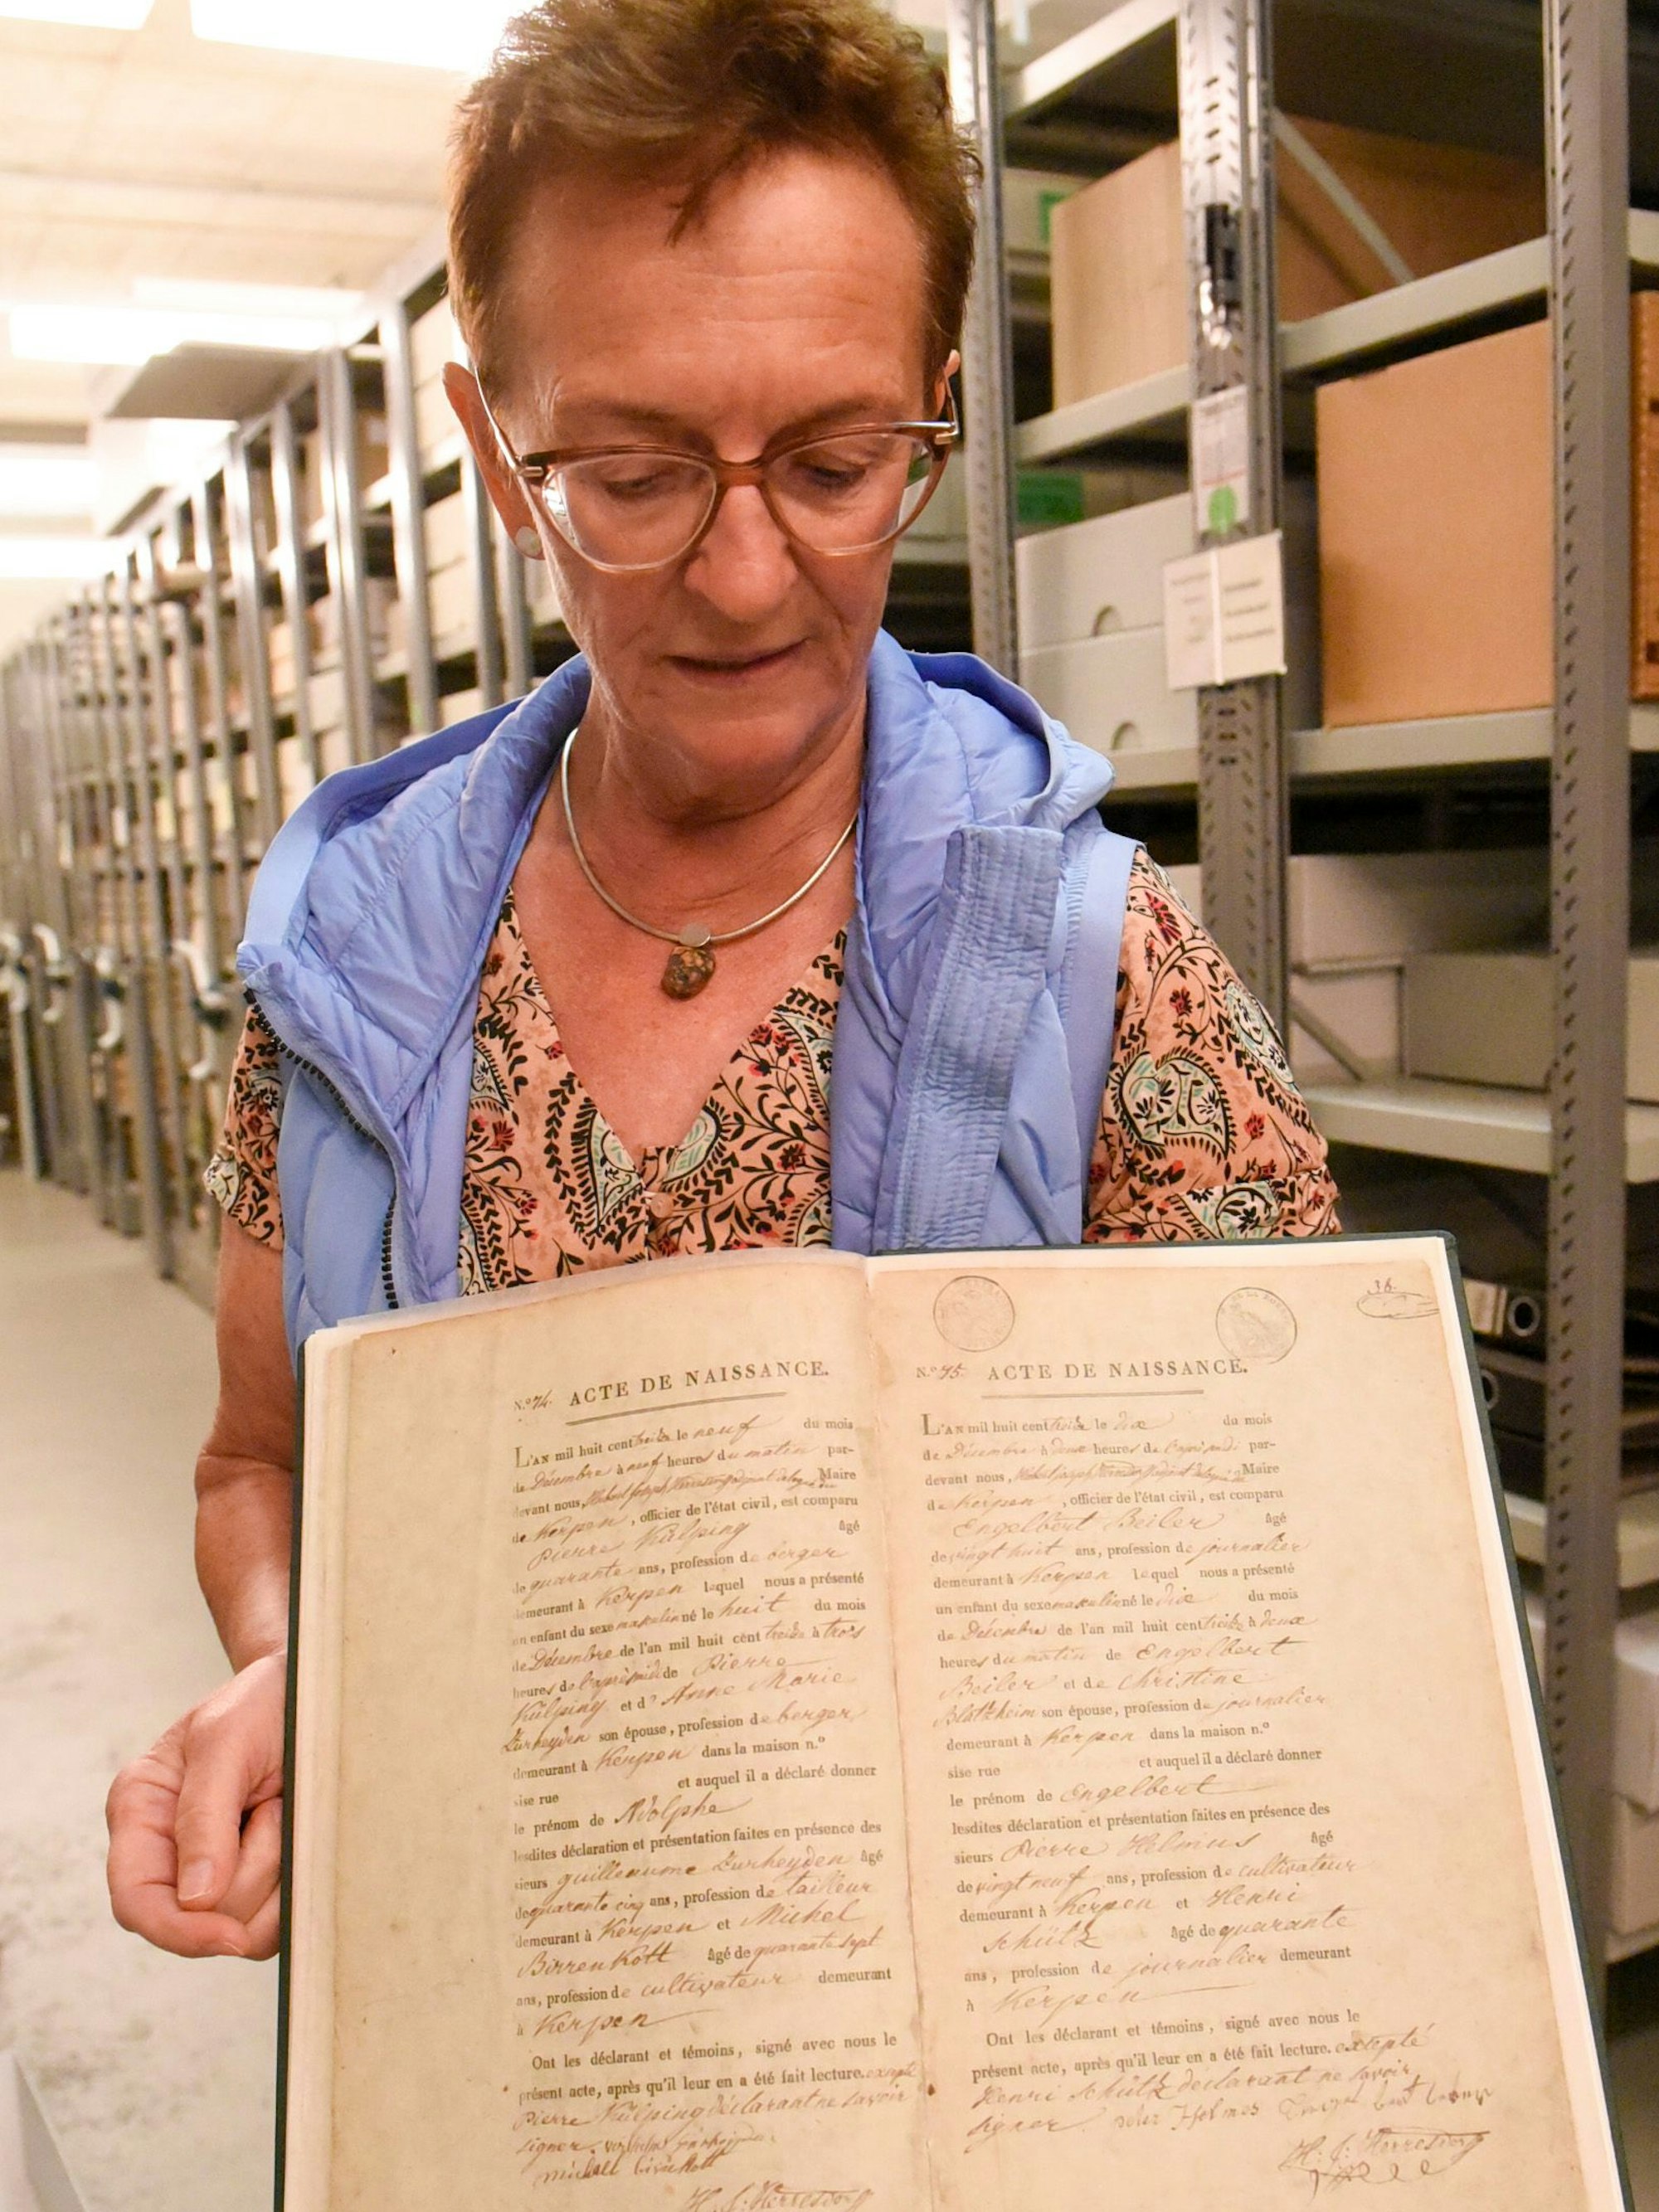 N.º 74. ACTE DE NAISSANCE.
L'AN mil huit cent treize le neuf du mois
de Décembre à neuf heures du matin par-
devant nous, adjoint Maire
de Kerpen, officier de l'état civil, est comparu
Pierre Külping âgé
de quarante ans, profession de berger
demeurant à Kerpen lequel nous a présenté
un enfant du sexe masculin né le huit du mois
de Décembre de l'an mil huit cent treize à trois
heures de l'aprèsmidi de Pierre
Külping et d' Anne Marie
Zurheyden son épouse, profession de berger
demeurant à Kerpen dans la maison n.º
sise rue et auquel il a déclaré donner
le prénom de Adolphe
lesdites déclaration et présentation faites en présence des
sieurs guilleaume Zurheyden âgé
de quarante cinq ans, profession de tailleur
demeurant à Kerpen et Michel
Birrenkott âgé de quarante sept
ans, profession de cultivateur demeurant
à Kerpen
Ont les déclarant et témoins, signé avec nous le
présent acte, après qu'il leur en a été fait lecture. excepté
Pierre Külping déclarant ne savoir
signer.
H. J. Herresdorf
36.
N.º 75. ACTE DE NAISSANCE.
L'AN mil huit cent treize le dix du mois
de Décembre à deux heures de l'aprèsmidi par-
devant nous, adjoint Maire
de Kerpen, officier de l'état civil, est comparu
Engelbert Beiler âgé
de vingt huit ans, profession de journalier
demeurant à Kerpen lequel nous a présenté
un enfant du sexe masculin né le dix du mois
de Décembre de l'an mil huit cent treize à deux
heures du matin de Engelbert
Beiler et de Christine
Blatzheim son épouse, profession de journalier
demeurant à Kerpen dans la maison n.º
sise rue et auquel il a déclaré donner
le prénom de Engelbert
lesdites déclaration et présentation faites en présence des
sieurs Pierre Helmus âgé
de vingt neuf ans, profession de cultivateur
demeurant à Kerpen et Henri
Schütz âgé de quarante
ans, profession de journalier demeurant
à Kerpen
Ont les déclarant et témoins, signé avec nous le
présent acte, après qu'il leur en a été fait lecture. excepté
Henri Schütz déclarant ne savoir
signer.
H. J. Herresdorf